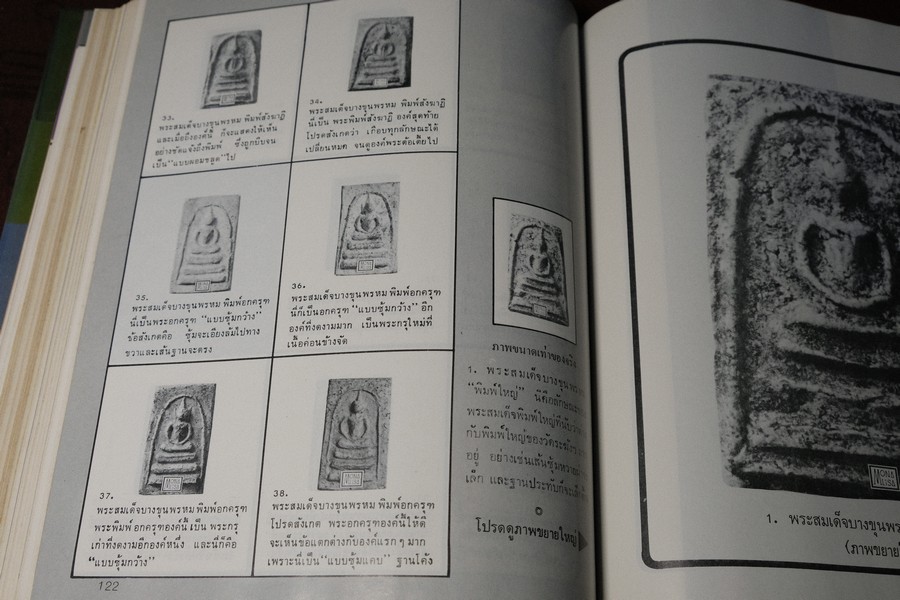 33.
พระสมเด็จบางขุนพรหม พิมพ์สังฆาฏิ
และเมื่อถึงองค์นี้ ก็จะแสดงให้เห็น
อย่างชัดแจ้งถึงพิมพ์ ซึ่งถูกบีบจน
เป็น "แบบผอมชลูด" ไป
34.
พระสมเด็จบางขุนพรหม พิมพ์สังฆาฏิ
นี่เป็น พระพิมพ์สังฆาฏิ องค์สุดท้าย
โปรดสังเกตว่า เกือบทุกลักษณะได้
เปลี่ยนหมด จนดูองค์พระต้อเตี้ยไป
35.
พระสมเด็จบางขุนพรหม พิมพ์อกครุฑ
นี่เป็นพระอกครุฑ "แบบซุ้มกว้าง"
ข้อสังเกตคือ ซุ้มจะเอียงล้มไปทาง
ขวาและเส้นฐานจะตรง
36.
พระสมเด็จบางขุนพรหม พิมพ์อกครุฑ
นี่ก็เป็นอกครุฑ "แบบซุ้มกว้าง" อีก
องค์ที่งดงามมาก เป็นพระกรุใหม่ที่
เนื้อค่อนข้างจัด
37.
พระสมเด็จบางขุนพรหม พิมพ์อกครุฑ
พระพิมพ์ อกครุฑองค์นี้ เป็น พระกรุ
เก่าที่งดงามอีกองค์หนึ่ง และนี่ก็คือ
"แบบซุ้มกว้าง"
38.
พระสมเด็จบางขุนพรหม พิมพ์อกครุฑ
โปรดสังเกต พระอกครุฑองค์นี้ให้ดี
จะเห็นข้อแตกต่างกับองค์แรก ๆ มาก
เพราะนี่เป็น "แบบซุ้มแคบ" ฐานโค้ง
122
ภาพขนาดเท่าของจริง
1. พระสมเด็จบางขุน
"พิมพ์ใหญ่"
พระสมเด็จพิมพ์ใหญ่
กับพิมพ์ใหญ่ของวัดระฆัง
อยู่ อย่างเช่นเส้นซุ้ม
เล็ก และฐานประทับก็จะ
โปรดดูภาพขยายใหญ่
MONA
LIISA
1. พระสมเด็จบางขุนพร
(ภาพขยาย